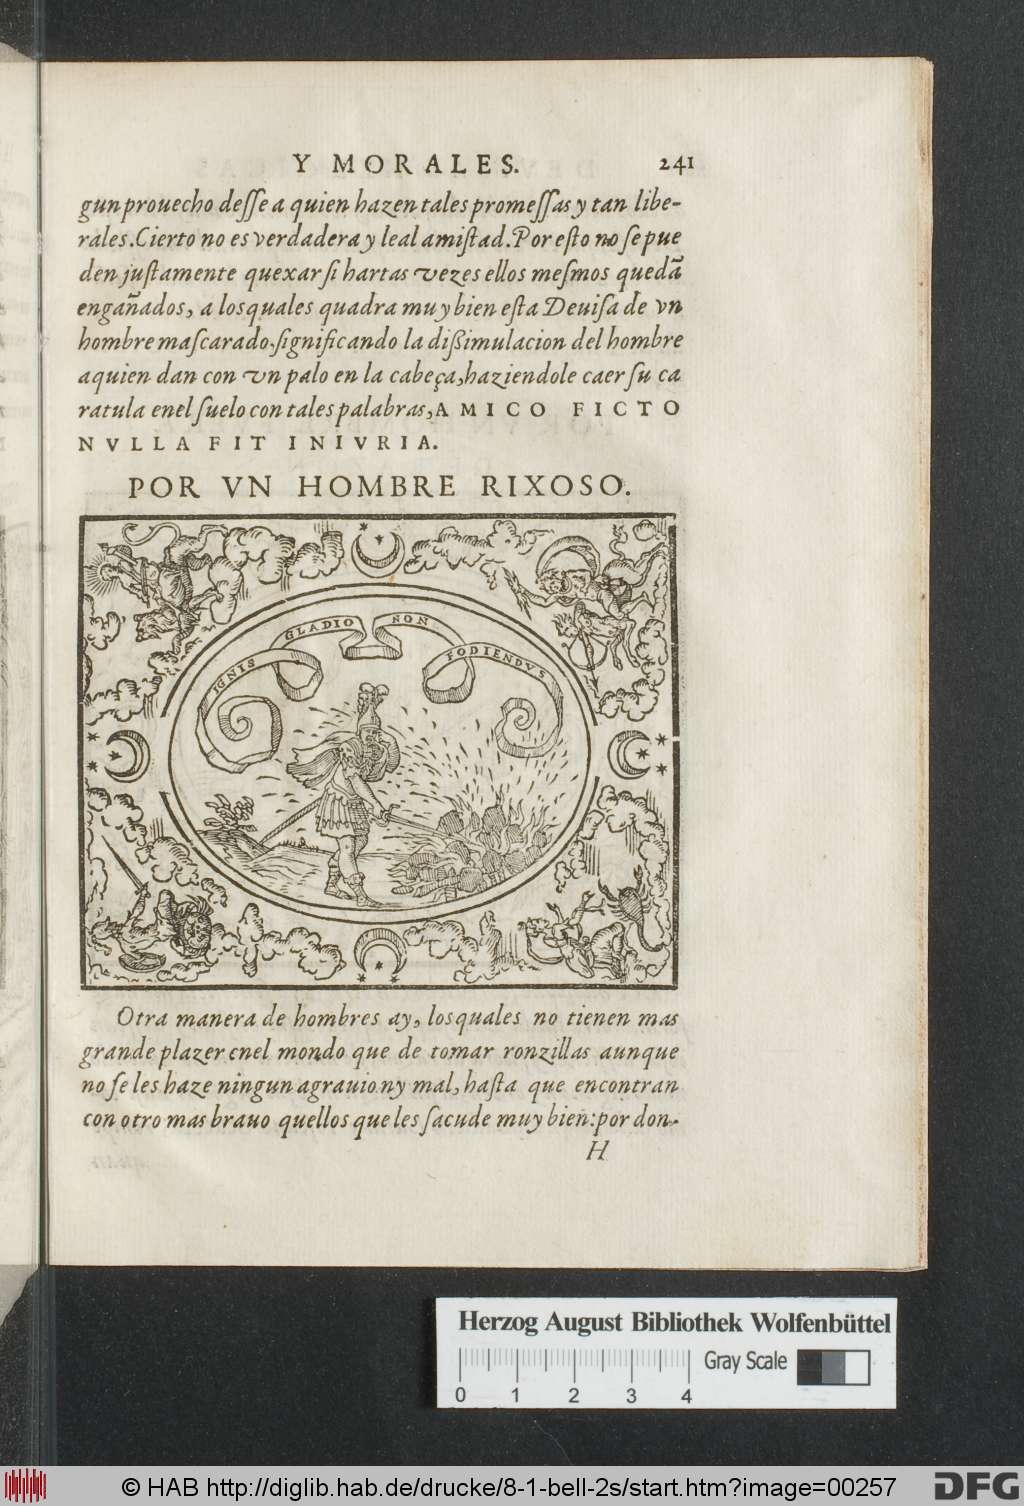 Y MORALES. 241
gun prouecho desse a quien hazen tales promessas y tan libe-
rales. Cierto no es verdadera y leal amistad. Por esto no se pue
den justamente quexar si hartas vezes ellos mesmos quedã
engañados, a los quales quadra muy bien esta Deuisa de vn
hombre mascarado, significando la dißimulacion del hombre
a quien dan con vn palo en la cabeça, haziendole caer su ca
ratula enel suelo con tales palabras, AMICO FICTO
NVLLA FIT INIVRIA.
POR VN HOMBRE RIXOSO.
IGNIS GLADIO NON FODIENDVS
Otra manera de hombres ay, los quales no tienen mas
grande plazer enel mondo que de tomar ronzillas aunque
no se les haze ningun agrauio ny mal, hasta que encontran
con otro mas brauo quellos que les sacude muy bien: por don-
H
Herzog August Bibliothek Wolfenbüttel
Gray Scale
0 1 2 3 4
© HAB http://diglib.hab.de/drucke/8-1-bell-2s/start.htm?image=00257
DFG